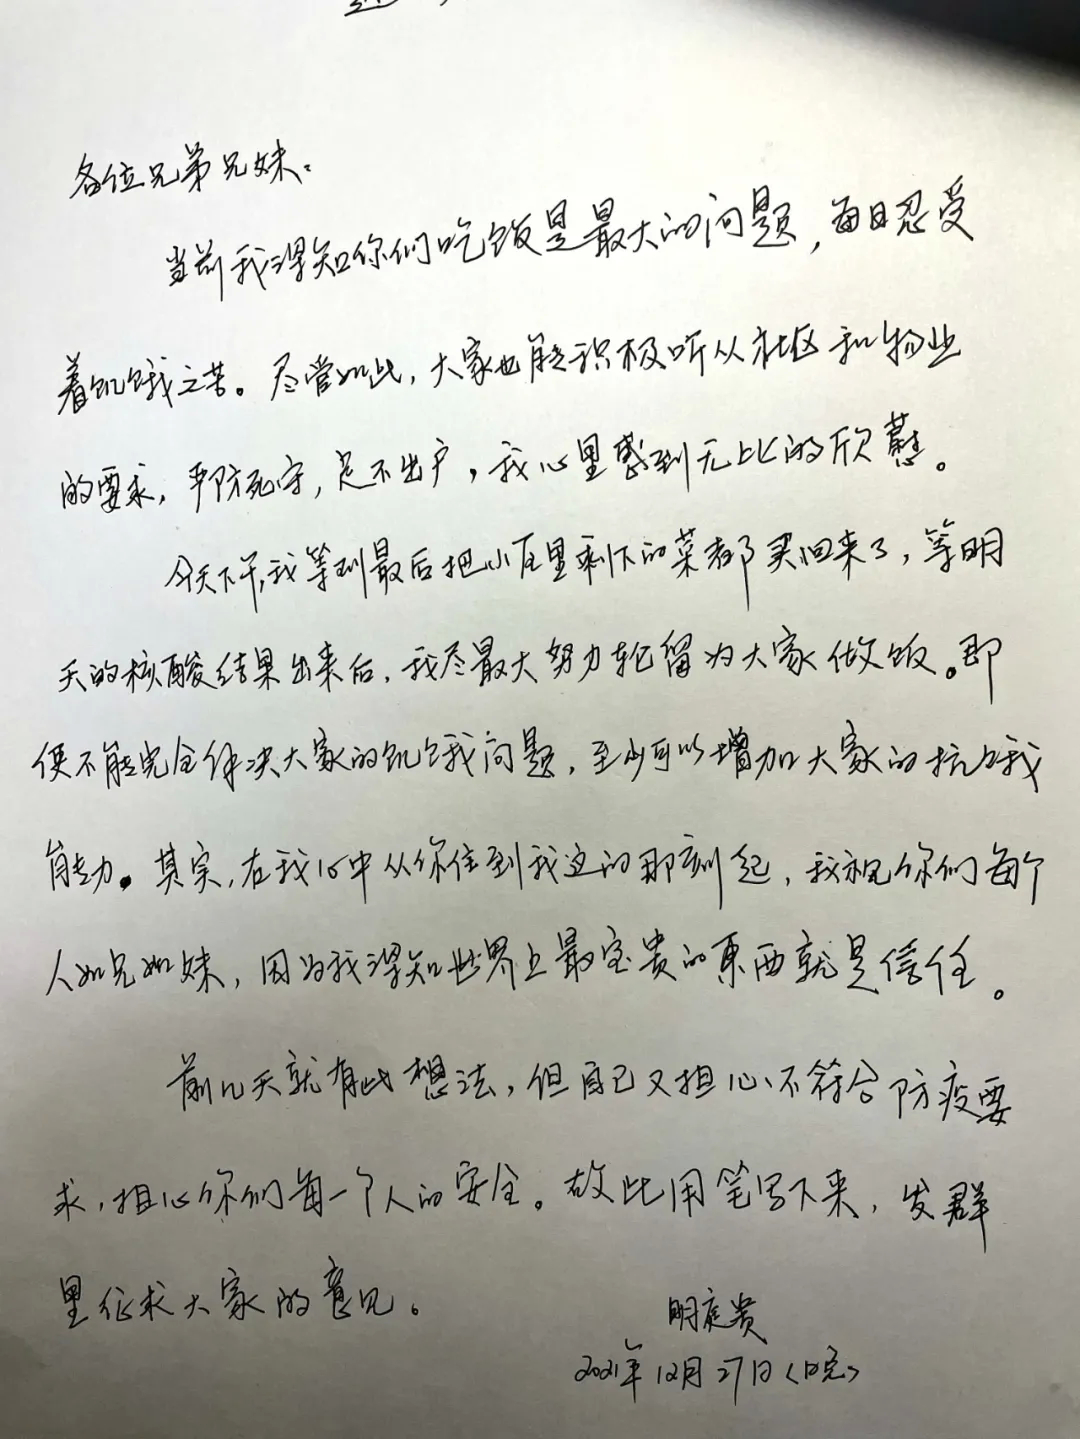 各位兄弟兄妹：
当前我得知你们吃饭是最大的问题，每日忍受
着饥饿之苦。尽管如此，大家也能积极听从社区和物业
的要求，严防死守，足不出户，我心里感到无比的欣慰。
今天下午，我等到最后把小店里剩下的菜都买回来了，等明
天的核酸结果出来后，我尽最大努力轮留为大家做饭。即
便不能完全体决大家的饥饿问题，至少可以增加大家的抗饿
能力。其实，在我心中从你住到我这的那刻起，我视你们每个
人如兄如妹，因为我得知世界上最宝贵的東西就是信任。
前几天就有此想法，但自己又担心不符合防疫要
求，担心你们每一个人的安全。故此用笔写下来，发群
里征求大家的意见。
明庭贵
2021年12月27日（晚）